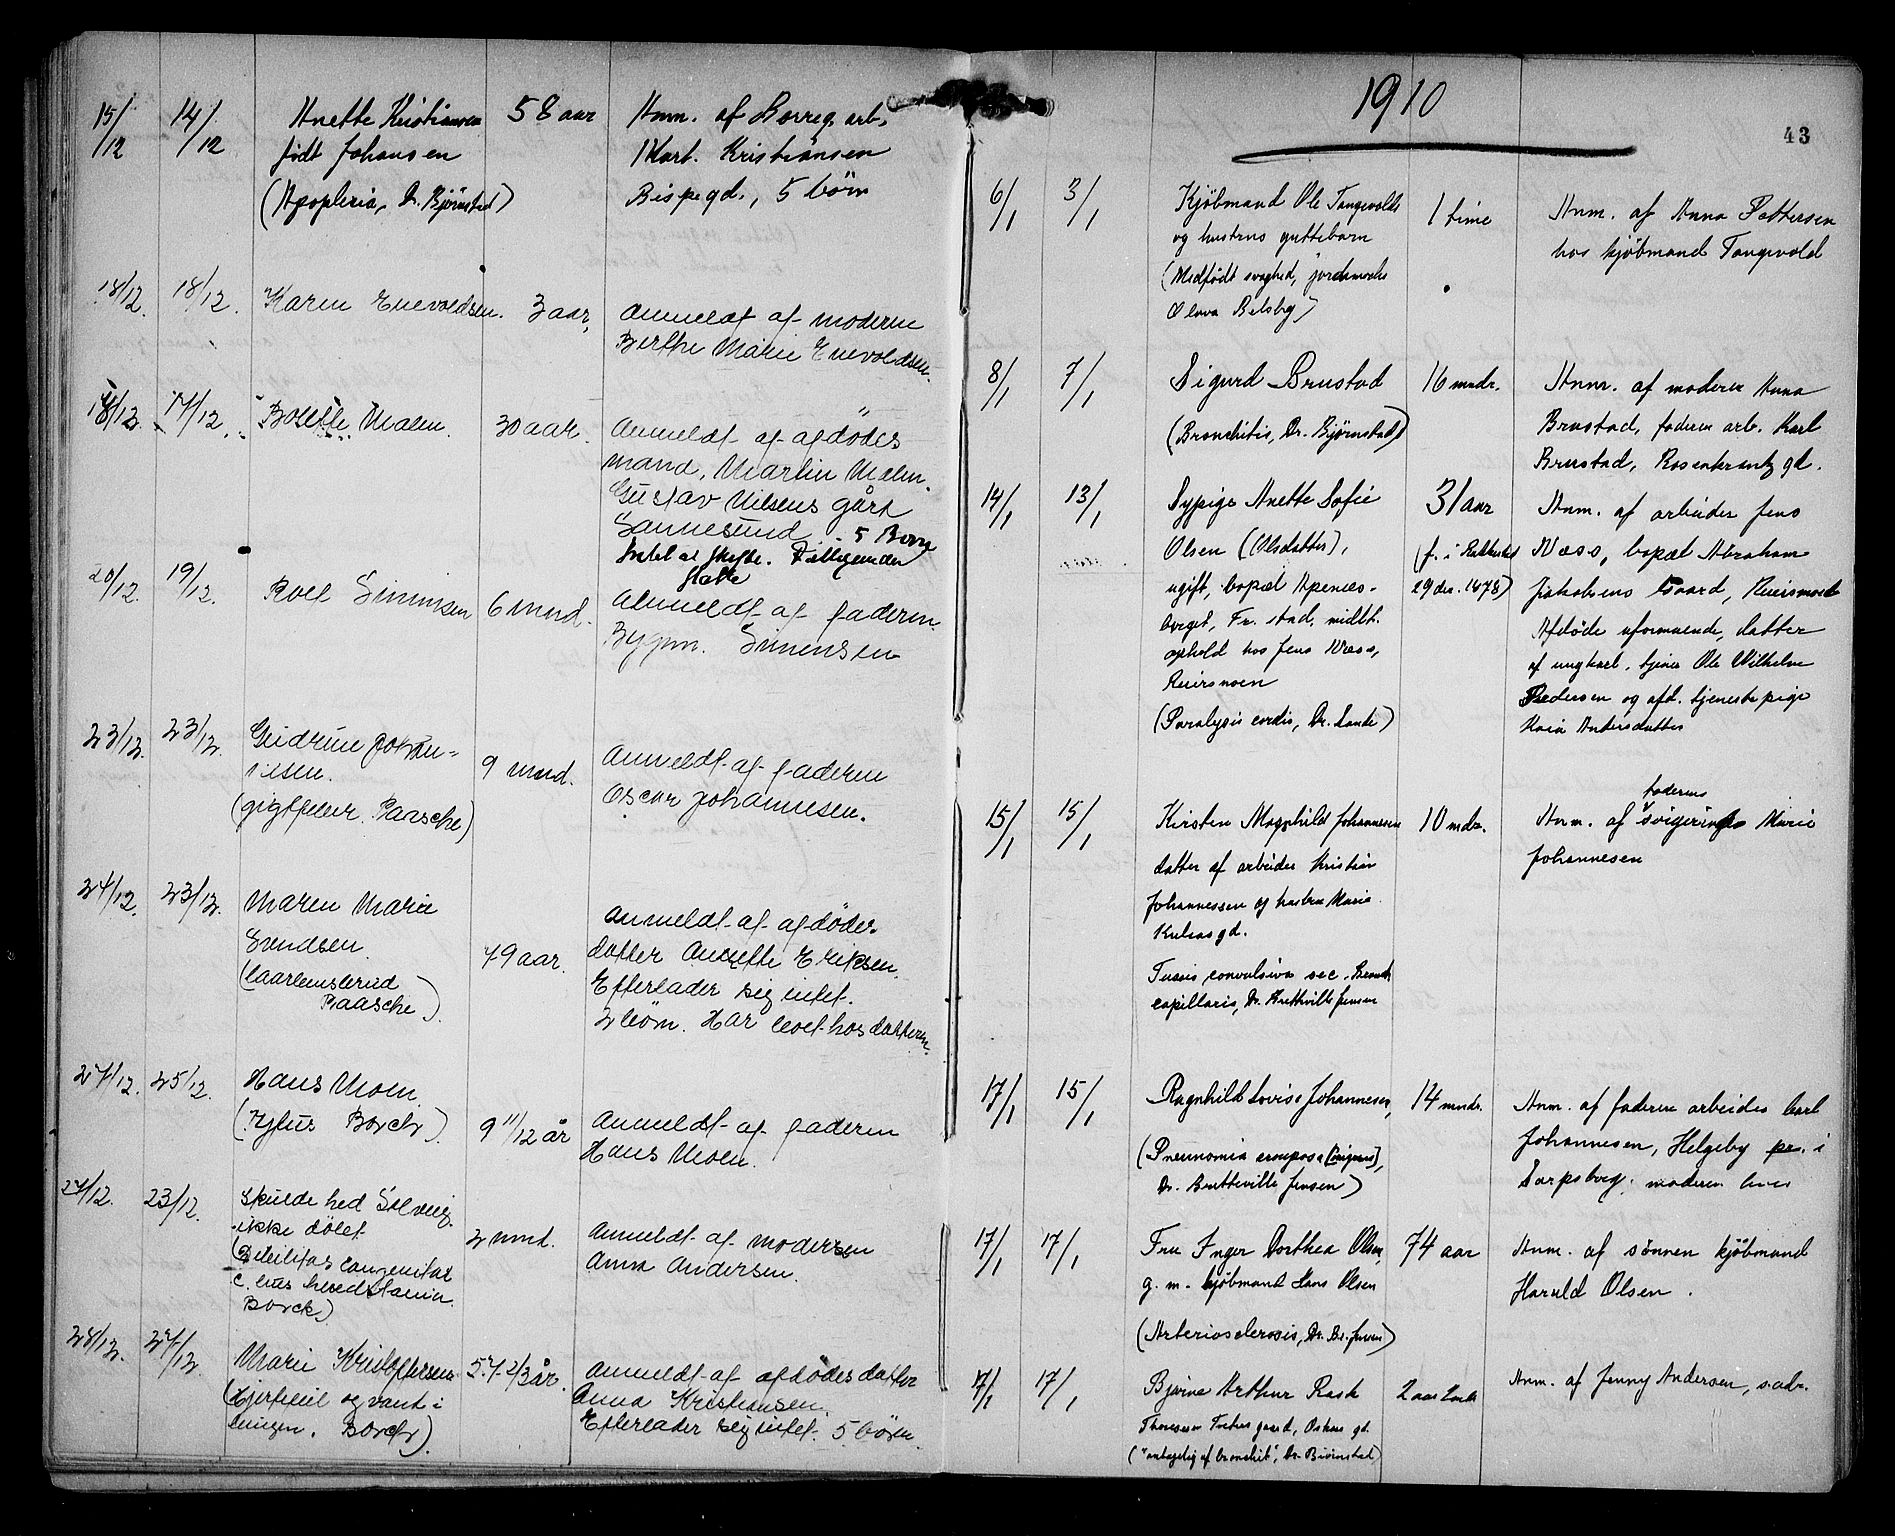 15/12 14/12 Anette Kristiansen 58 aar Anm. af Borreg. arb.
født Johansen Mart. Kristiansen
(Apoplexia, Dr. Bjørnstad) Bispegd., 5 børn
18/12. 18/12. Karen Enevoldsen. 3 aar, Anmeldt af moderen
Berthe Marie Enevoldsen.
18/12. 17/12. Bolette Malm. 30 aar. Anmeldt af afdødes
mand, Martin Malm.
Gustav Nilsens gård
Sannesund. 5 Børn
Intet at skifte.
20/12. 19/12. Rolf Simensen 6 mnd. Anmeldt af faderen
Bygm. Simensen
23/12. 23/12. Gudrun Johan-
nesen. 9 mnd. Anmeldt af faderen
(gigtfeber. Paasche) Oscar Johannesen.
24/12. 23/12. Maren Marie
Svendsen. 79 aar. Anmeldt af afdødes
datter Annette Eriksen.
Paasche). Efterlader sig intet.
2 børn. Har levet hos datteren.
27/12. 25/12. Hans Moen.
(Tyfus Borch). 9 11/12 år Anmeldt af faderen
Hans Moen.
27/12. 23/12. Skulde hed Solveig
ikke døbt 2 mnd. Anmeldt af moderen
(Debilitas congenital Anna Andersen.
Borch)
28/12. 27/12. Marie Kristoffersen 57 2/3 år. Anmeldt af afdødes datter
(Hjertefeil og vand i Anna Kristiansen.
lungen. Borch). Efterlader sig intet. 5 børn.
1910
43
6/1 3/1 Kjøbmand Ole Tangevolds 1 time Anm. af Anna Pettersen
og hustrus guttebarn hos kjøbmand Tangevold
(Medfødt svaghed, jordmoder
Olava Belsby)
8/1 7/1 Sigurd Brustad 16 mndr. Anm. af moderen Anna
(Bronchitis, Dr. Bjørnstad) Brustad, faderen arb. Karl
Brustad, Rosenkrantz gd.
14/1 13/1 Sypige Anette Sofie 31 aar Anm. af arbeider Jens
Olsen (Olsdatter), (f. i Rakkestad Næss, bopæl Abraham
ugift, bopæl Apenes- 29 des. 1878) Jakobsens Gaard,
berget, Fr.stad, midlt. Afdøde uformuende, datter
ophold hos Jens Næss, af ungkarl, tjener Ole Wilhelm
Pedersen og afd. tjenestepige
(Paralysis cordis, Dr. Lande) Maria Andersdatter
15/1 15/1 Kirsten Magnhild Johannesen 10 mdr. Anm. af faderens svigerinde Marie
datter af arbeider Kristian Johannesen
Johannessen og hustru Marie
Kulaasgd.
Tussis convulsiva sec. Bronch.
capillaris, Dr. Bretteville Jensen
17/1 15/1 Ragnhild Lovise Johannesen, 14 mndr. Anm. af faderen arbeider Carl
(Pneumonia crouposa Johannesen, Helgeby pr. i
Dr. Bretteville Jensen) Sarpsborg, moderen lever
17/1 17/1 Fru Inger Dorthea Olsen, 74 aar Anm. af sønnen kjøbmand
g. m. kjøbmand Hans Olsen Harald Olsen.
(Arteriosclerosis, Dr. Br. Jensen)
17/1 17/1 Bjarne Arthur Rask 2 aar Anm. af Jenny Andersen, s. adr.
gaard, Oskars gd.
("antagelig af bronchit", Dr. Bjørnstad)